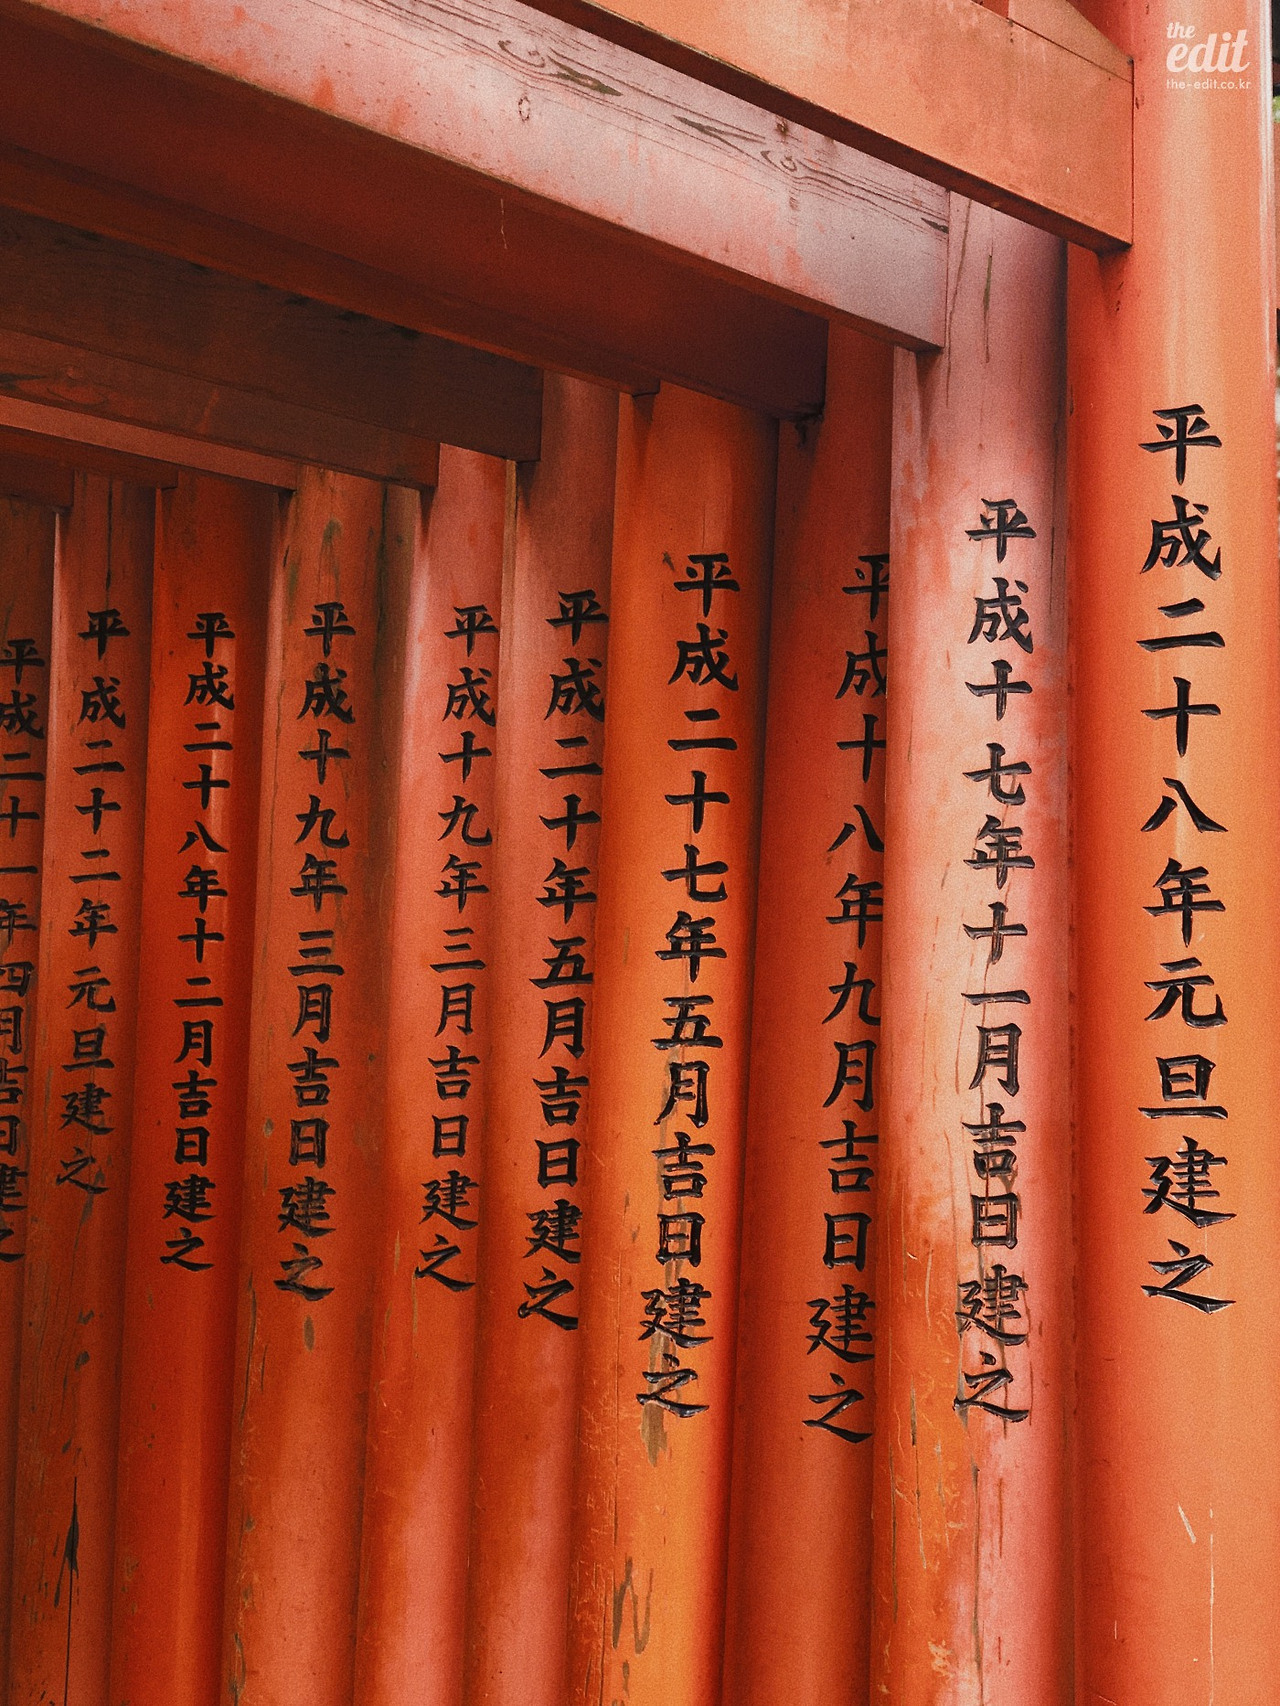 the
edit
the-edit.co.kr
平成二十八年元旦建之
平成十七年十一月吉日建之
平成十八年九月吉日建之
平成二十七年五月吉日建之
平成二十年五月吉日建之
平成十九年三月吉日建之
平成十九年三月吉日建之
平成二十八年十二月吉日建之
平成二十二年元旦建之
平成二十一年四月吉日建之